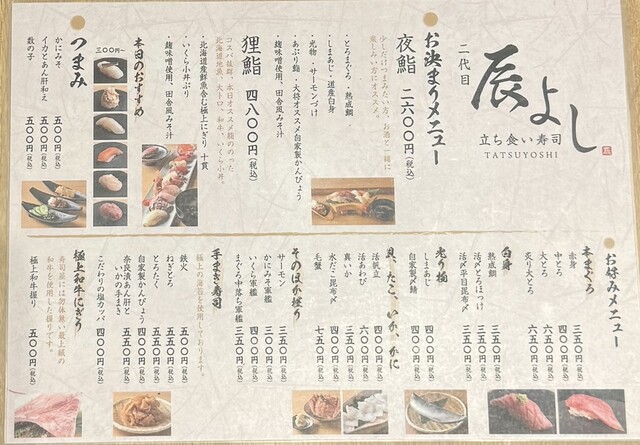 二代目
辰よし
立ち食い寿司
TATSUYOSHI
お決まりメニュー
夜鮨 二六〇〇円(税込)
少しだけつまみたい方、お酒と一緒に
楽しみたい方にオススメ
・とろまぐろ・熟成鯛
・しまあじ・道産白身
・光物・サーモンづけ
・あぶり鮨・大将オススメ自家製かんぴょう
・麹味噌使用、田舎風みそ汁
狸鮨 四八〇〇円(税込)
コスパ抜群、本日オススメ鮨ののった
北海道地魚、大トロ、和牛、いくら小丼
・北海道産鮮魚含む極上にぎり 十貫
・いくら小丼ぶり
・麹味噌使用、田舎風みそ汁
本日のおすすめ
三〇〇円〜
つまみ
かにみそ 五〇〇円(税込)
イカとあん肝和え 五〇〇円(税込)
数の子 五〇〇円(税込)
お好みメニュー
本まぐろ
赤身 三五〇円(税込)
中とろ 四〇〇円(税込)
大とろ 六〇〇円(税込)
炙り大とろ 六五〇円(税込)
白身
熟成鯛 三五〇円(税込)
活〆とろほっけ 三五〇円(税込)
活〆平目昆布〆 三五〇円(税込)
光り物
しまあじ 四〇〇円(税込)
自家製〆鯖 四〇〇円(税込)
貝、たこ、いか、かに
活帆立 四〇〇円(税込)
活あわび 六〇〇円(税込)
真いか 三五〇円(税込)
水だこ昆布〆 四〇〇円(税込)
毛蟹 七五〇円(税込)
そのほか握り
サーモン 三五〇円(税込)
かにみそ軍艦 三〇〇円(税込)
いくら軍艦 四〇〇円(税込)
まぐろ中落ち軍艦 四〇〇円(税込)
手まき寿司
極上の海苔を使用しております。
鉄火 五五〇円(税込)
ねぎとろ 五五〇円(税込)
とろたく 五五〇円(税込)
自家製かんぴょう
奈良漬あん肝と
いかの手まき
こだわりの塩カッパ 四〇〇円(税込)
極上和牛にぎり
寿司屋には勿体無い最上級の
和牛を使用した握りです。
極上和牛握り 五〇〇円(税込)